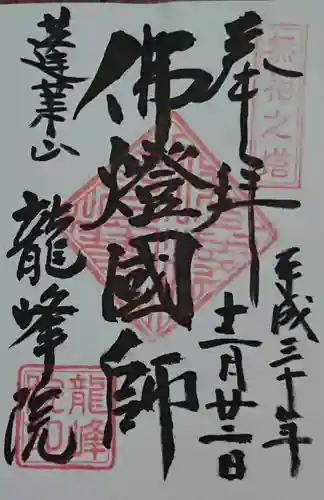 奉拝
平成三十年
十一月廿二日
佛燈國師
蓬莱山
龍峰院
無相之塔